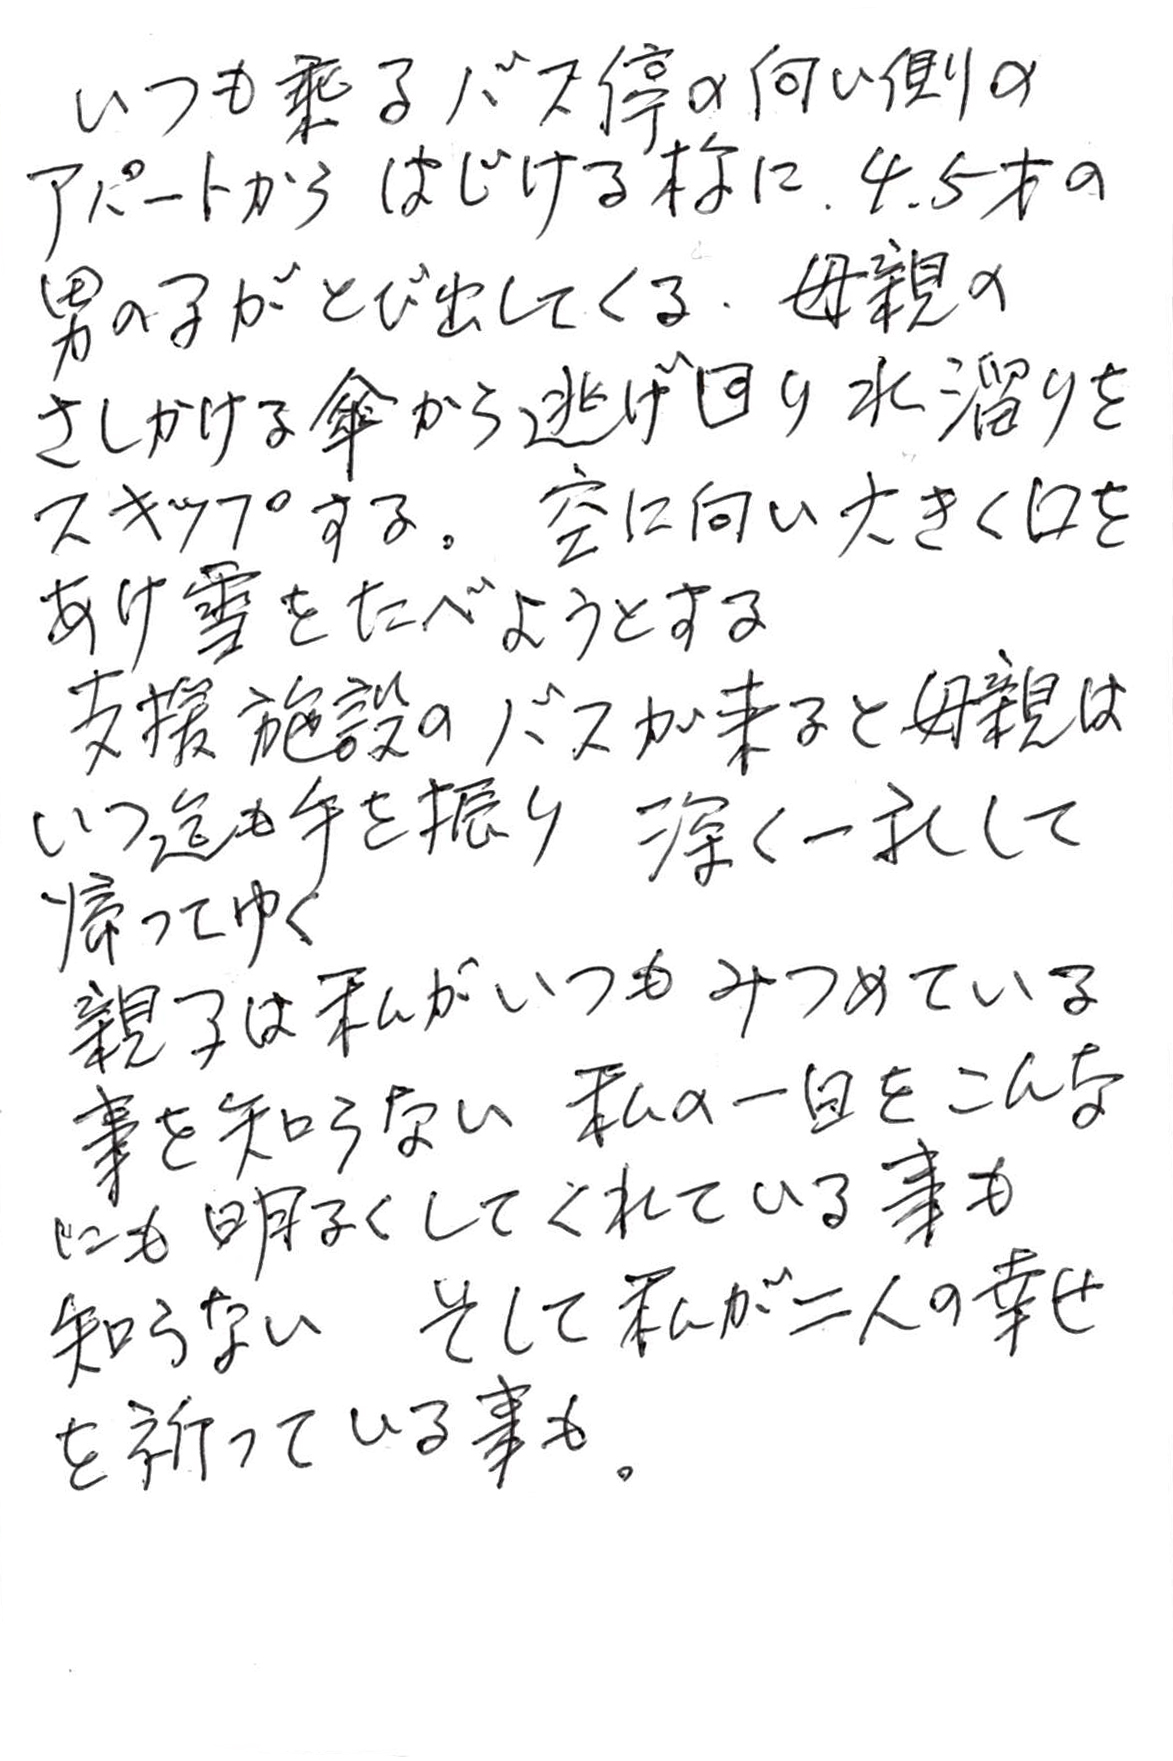 いつも乗るバス停の向い側の
アパートからはじける様に、4、5才の
男の子がとび出してくる、母親の
さしかける傘から逃げ回り水溜りを
スキップする。空に向い大きく口を
あけ雪をたべようとする
支援施設のバスが来ると母親は
いつ迄も手を振り 深く一礼して
帰ってゆく
親子は私がいつもみつめている
事を知らない 私の一日をこんな
にも明るくしてくれている事も
知らない そして私が二人の幸せ
を祈っている事も。